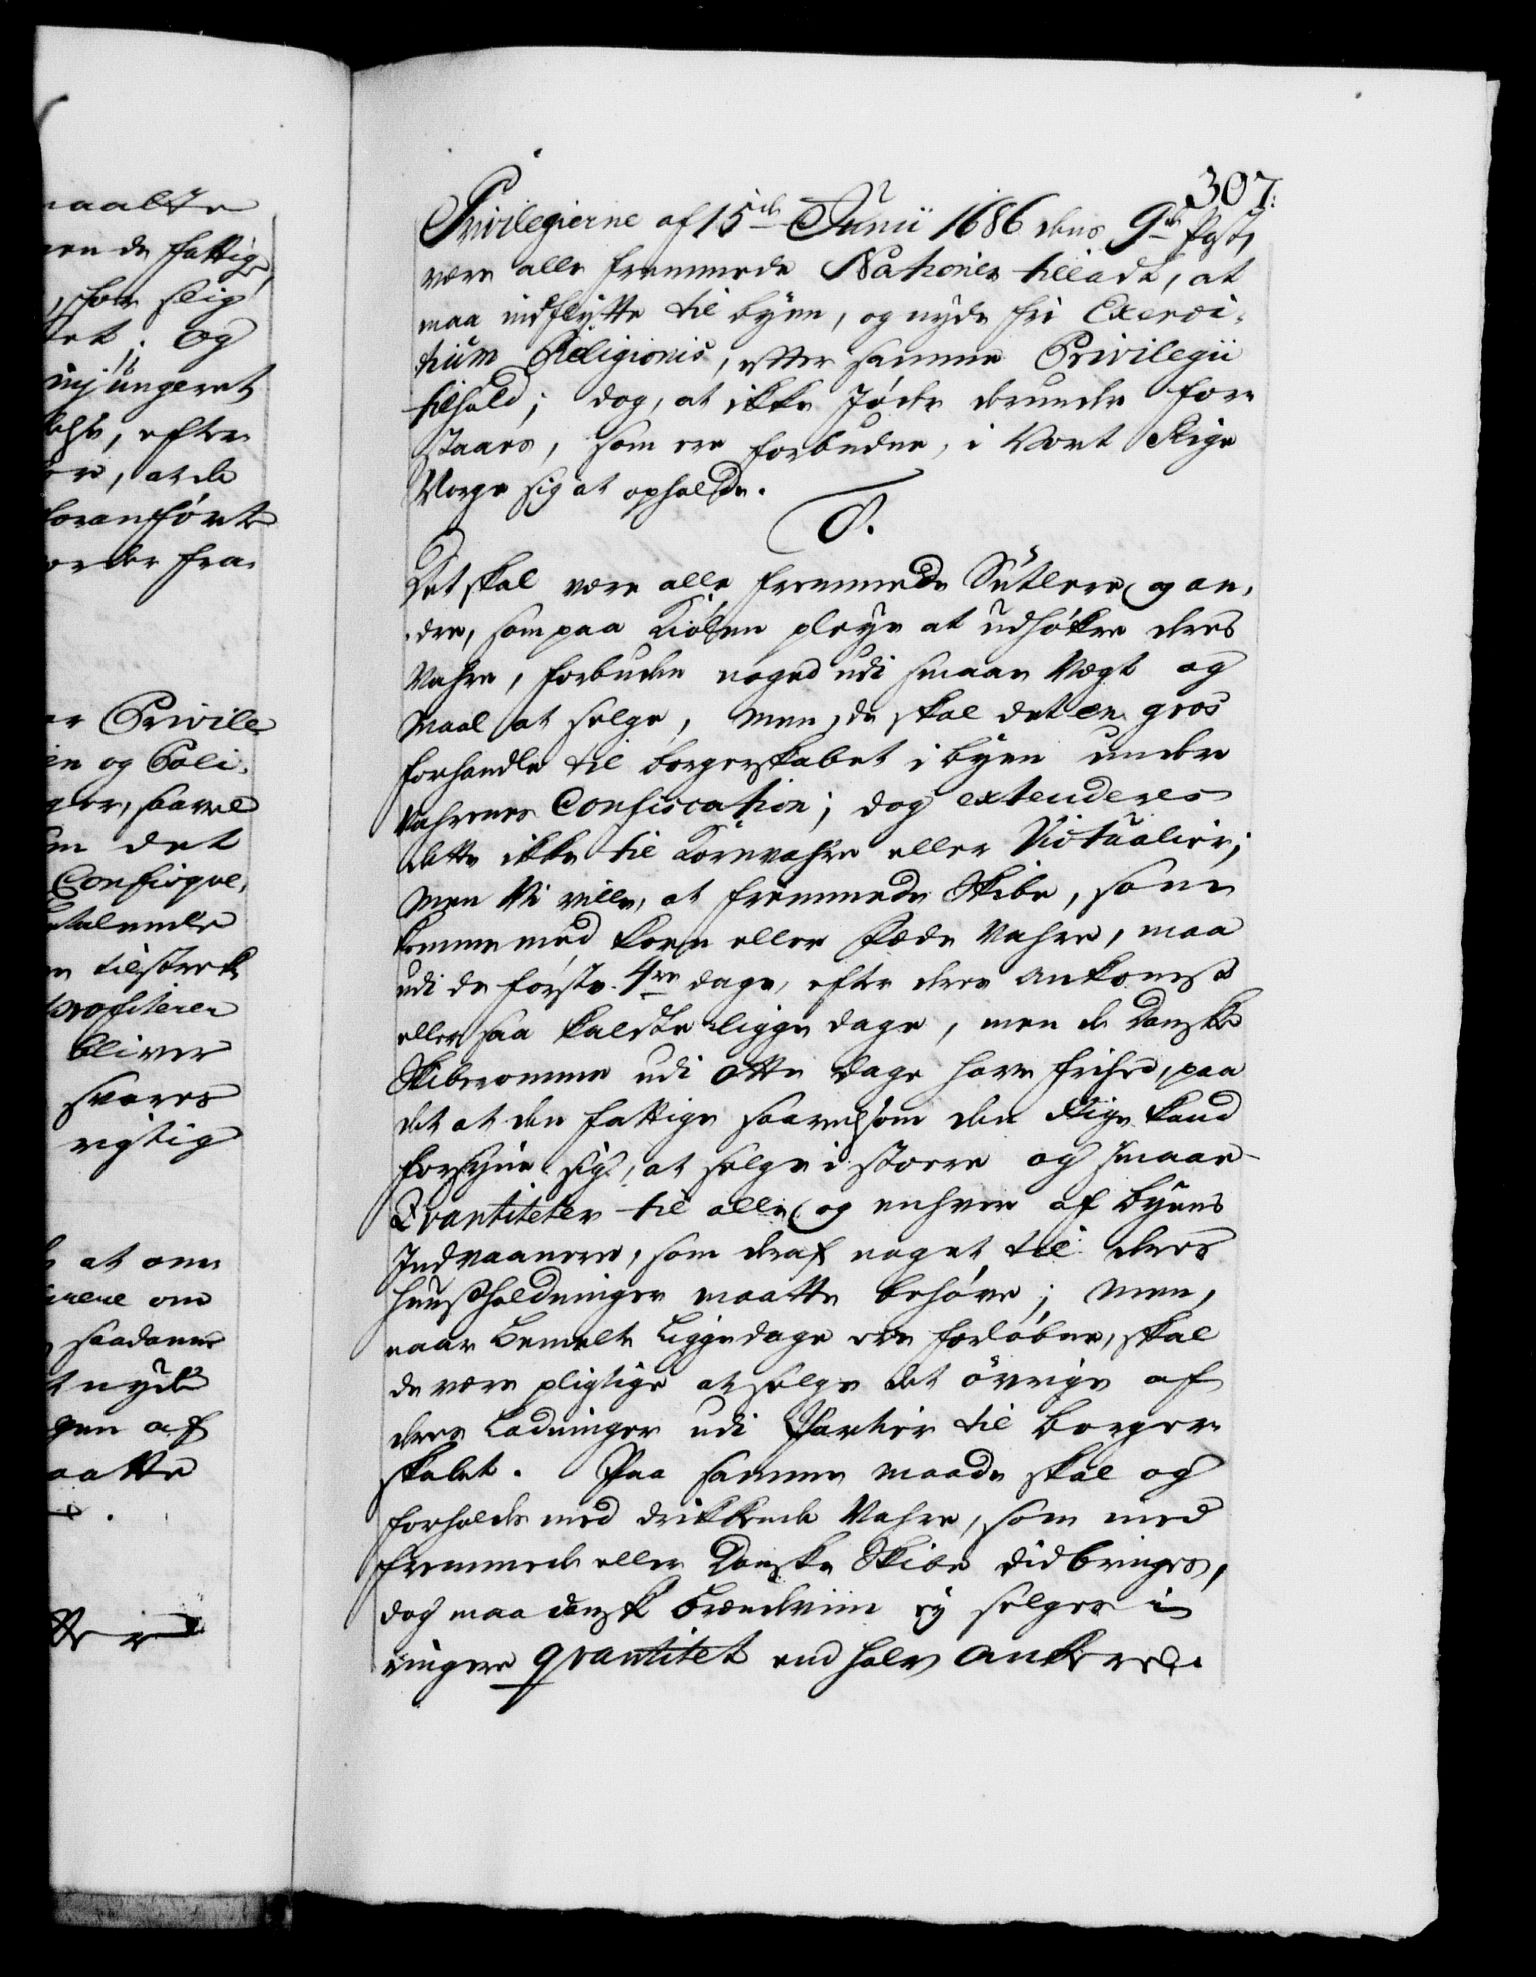 aalte
en de fattige,
, for slig
tet; og
injungeret
else, efter
re, at de
foranførte
order fra
er Privile
en og Poli-
ger, saavel
en det
Confisque-
etalende
en tilstræk
profiterer
bliver
svares
rigtig
at om
ene om
saadanne
t nyde
gen af
aatte
307.
Privilegierne af 15de Junii 1686 dens 9de Post,
være alle fremmede Nationer tilladt, at
maa indflytte til byen, og nyde fri Exerci-
tium Religionis, efter samme Privilegii
tilhold; dog, at ikke Jøder derunder for-
staaes, som ere forbudne, i Vort Rige
Norge sig at opholde.
8.
Det skal være alle fremmede Sutlere og an-
dre, som paa Kiølen pleye at udhøkre deres
Vahre, forbuden noged udi smaae Vægt og
Maal at selge, men de skal det en gros
forhandle til borgerskabet i byen under
Vahrenes Confiscation; dog extenderes
dette ikke til Kornvahre eller Victualier;
Men Vi ville, at fremmede Skibe, som
komme med korn eller Fæde Vahre, maa
udi de første 4re dage, efter deres ankomst
eller saa kaldte ligge dage, men de Danske
Skiberomme udi otte dage have frihed, paa
det at den fattige saavelsom den Rige kand
forsyne sig, at selge i større og smaae
Qvantiteter til alle og enhver af byens
Indvaanere, som deraf noget til deres
huusholdninger maatte behøve; Men,
naar bemelte Liggedage ere forløbne, skal
de være pligtige at selge det øvrige af
deres Ladninger udi Partier til borger-
skabet. Paa samme maade skal og
forholdes med drikkende Vahre, som med
fremmede eller Danske Skibe didbringes,
dog maa dansk brændeviin ey selges i
ringere qvantitet end halv Ankere.